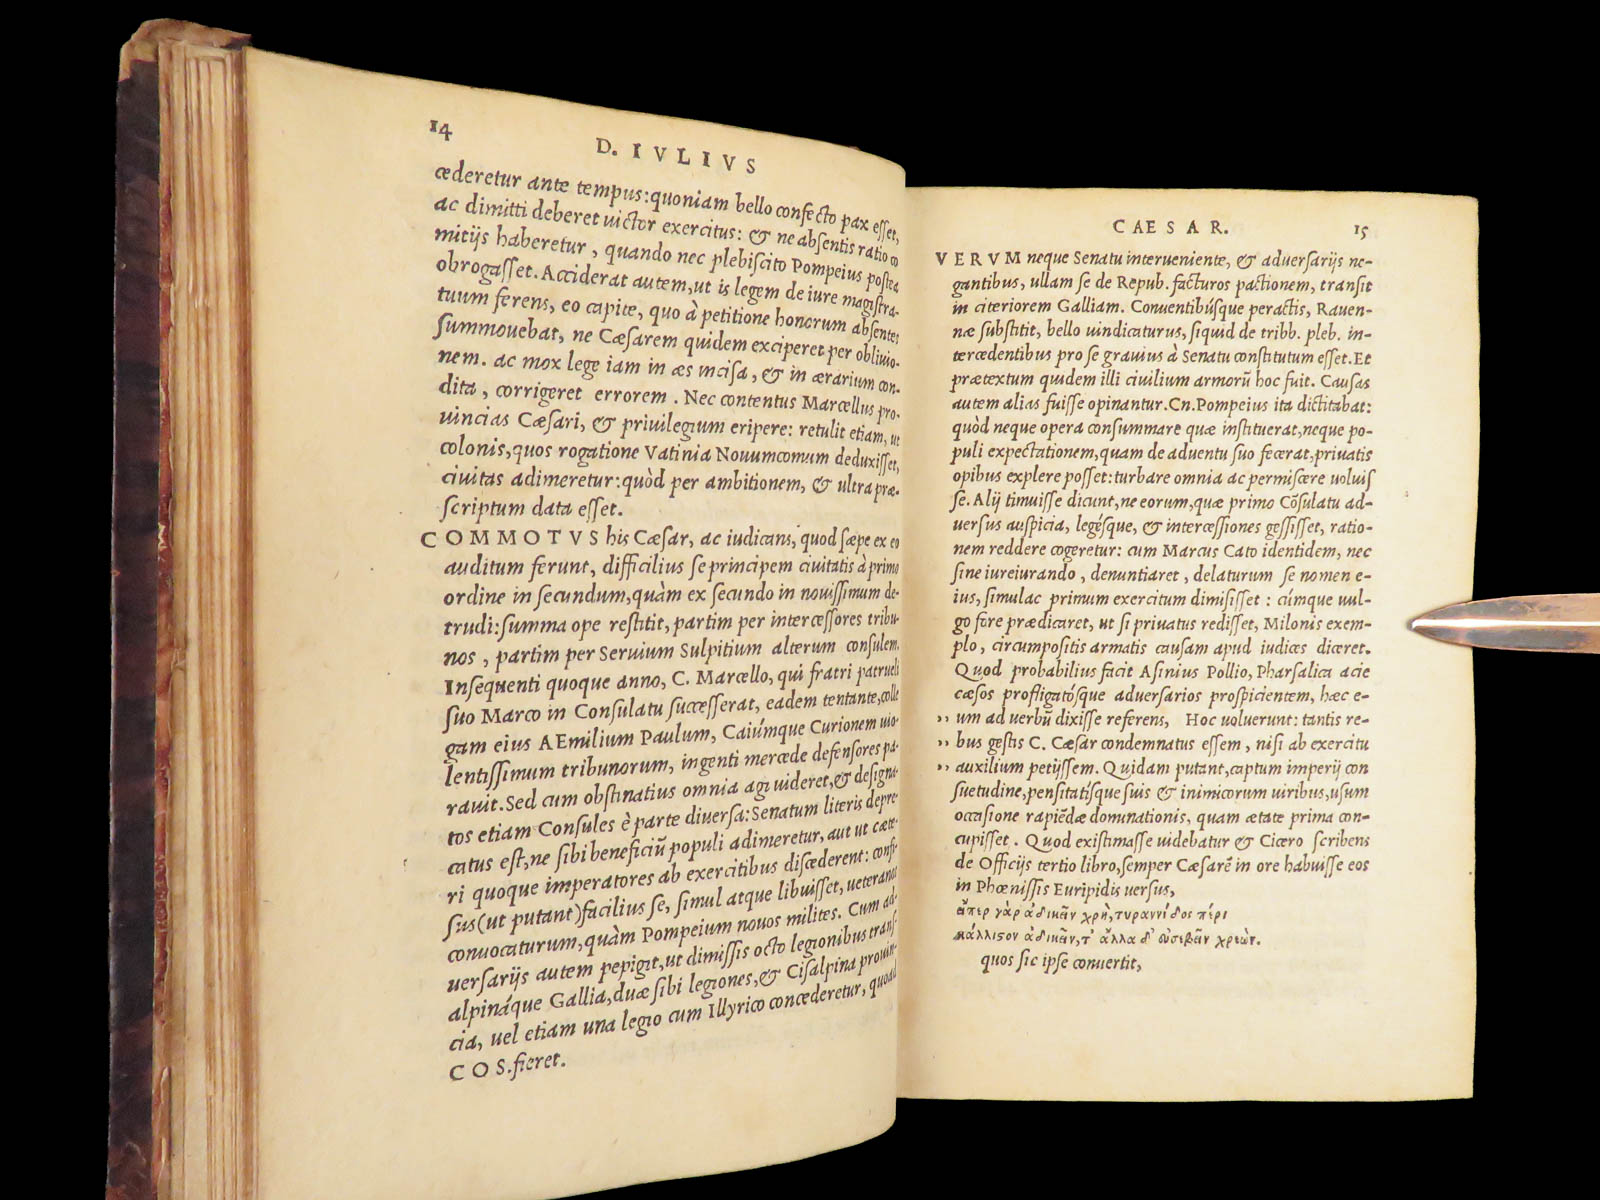 14
D. IVLIVS
cederetur ante tempus: quoniam bello confecto pax esset,
ac dimitti deberet victor exercitus: & ne absentis ratio co
mitijs haberetur, quando nec plebiscito Pompeius postea
obrogasset. Acciderat autem, ut is legem de iure magistra-
tuum ferens, eo capite, quo à petitione honorum absentes
summouebat, ne Cæsarem quidem exciperet per obliuio-
nem. ac mox lege iam in æs incisa, & in ærarium con-
dita, corrigeret errorem. Nec contentus Marcellus pro-
uincias Cæsari, & priuilegium eripere: retulit etiam, ut
colonis, quos rogatione Vatinia Nouumcomum deduxisset,
ciuitas adimeretur: quòd per ambitionem, & ultra præ-
scriptum data esset.
COMMOTVS his Cæsar, ac iudicans, quod sæpe ex eo
auditum ferunt, difficilius se principem ciuitatis à primo
ordine in secundum, quàm ex secundo in nouissimum de-
trudi: summa ope restitit, partim per intercessores tribu-
nos, partim per Seruium Sulpitium alterum consulem.
Insequenti quoque anno, C. Marcello, qui fratri patrueli
suo Marco in Consulatu successerat, eadem tentante, colle
gam eius AEmilium Paulum, Caiúmque Curionem uio-
lentissimum tribunorum, ingenti mercede defensores pa-
rauit. Sed cum obstinatius omnia agi uideret, & designa-
tos etiam Consules è parte diuersa: Senatum literis depre-
catus est, ne sibi beneficiũ populi adimeretur, aut ut cæte-
ri quoque imperatores ab exercitibus discederent: confi-
sus (ut putant) facilius se, simul atque libuisset, ueteranos
conuocaturum, quàm Pompeium nouos milites. Cum ad-
uersarijs autem pepigit, ut dimissis octo legionibus trans-
alpináque Gallia, duæ sibi legiones, & Cisalpina prouin-
cia, uel etiam una legio cum Illyrico concederetur, quoad
COS. fieret.
CAESAR.
15
VERVM neque Senatu interueniente, & aduersarijs ne-
gantibus, ullam se de Repub. facturos pactionem, transit
in citeriorem Galliam. Conuentibúsque peractis, Rauen-
næ substitit, bello uindicaturus, siquid de tribb. pleb. in-
tercedentibus pro se grauius à Senatu constitutum esset. Et
prætextum quidem illi ciuilium armorũ hoc fuit. Causas
autem alias fuisse opinantur. Cn. Pompeius ita dictitabat:
quòd neque opera consummare quæ instituerat, neque po-
puli expectationem, quam de aduentu suo fecerat, priuatis
opibus explere posset: turbare omnia ac permiscere uoluis
se. Alij timuisse dicunt, ne eorum, quæ primo Cõsulatu ad-
uersus auspicia, legésque, & intercessiones gessisset, ratio-
nem reddere cogeretur: cum Marcus Cato identidem, nec
sine iureiurando, denuntiaret, delaturum se nomen e-
ius, simulac primum exercitum dimisisset: cúmque uul-
go fore prædicaret, ut si priuatus redisset, Milonis exem-
plo, circumpositis armatis causam apud iudices diceret.
Quod probabilius facit Asinius Pollio, Pharsalica acie
cæsos profligatósque aduersarios prospicientem, hæc e-
,, um ad uerbũ dixisse referens, Hoc uoluerunt: tantis re-
,, bus gestis C. Cæsar condemnatus essem, nisi ab exercitu
,, auxilium petijssem. Quidam putant, captum imperij con
suetudine, pensitatísque suis & inimicorum uiribus, usum
occasione rapiẽdæ dominationis, quam ætate prima con-
cupisset. Quod existimasse uidebatur & Cicero scribens
de Officijs tertio libro, semper Cæsarẽ in ore habuisse eos
in Phœnissis Euripidis uersus,
εἴπερ γὰρ ἀδικεῖν χρὴ, τυραννίδος πέρι
κάλλιστον ἀδικεῖν, τ' ἄλλα δ' εὐσεβεῖν χρεών.
quos sic ipse conuertit,